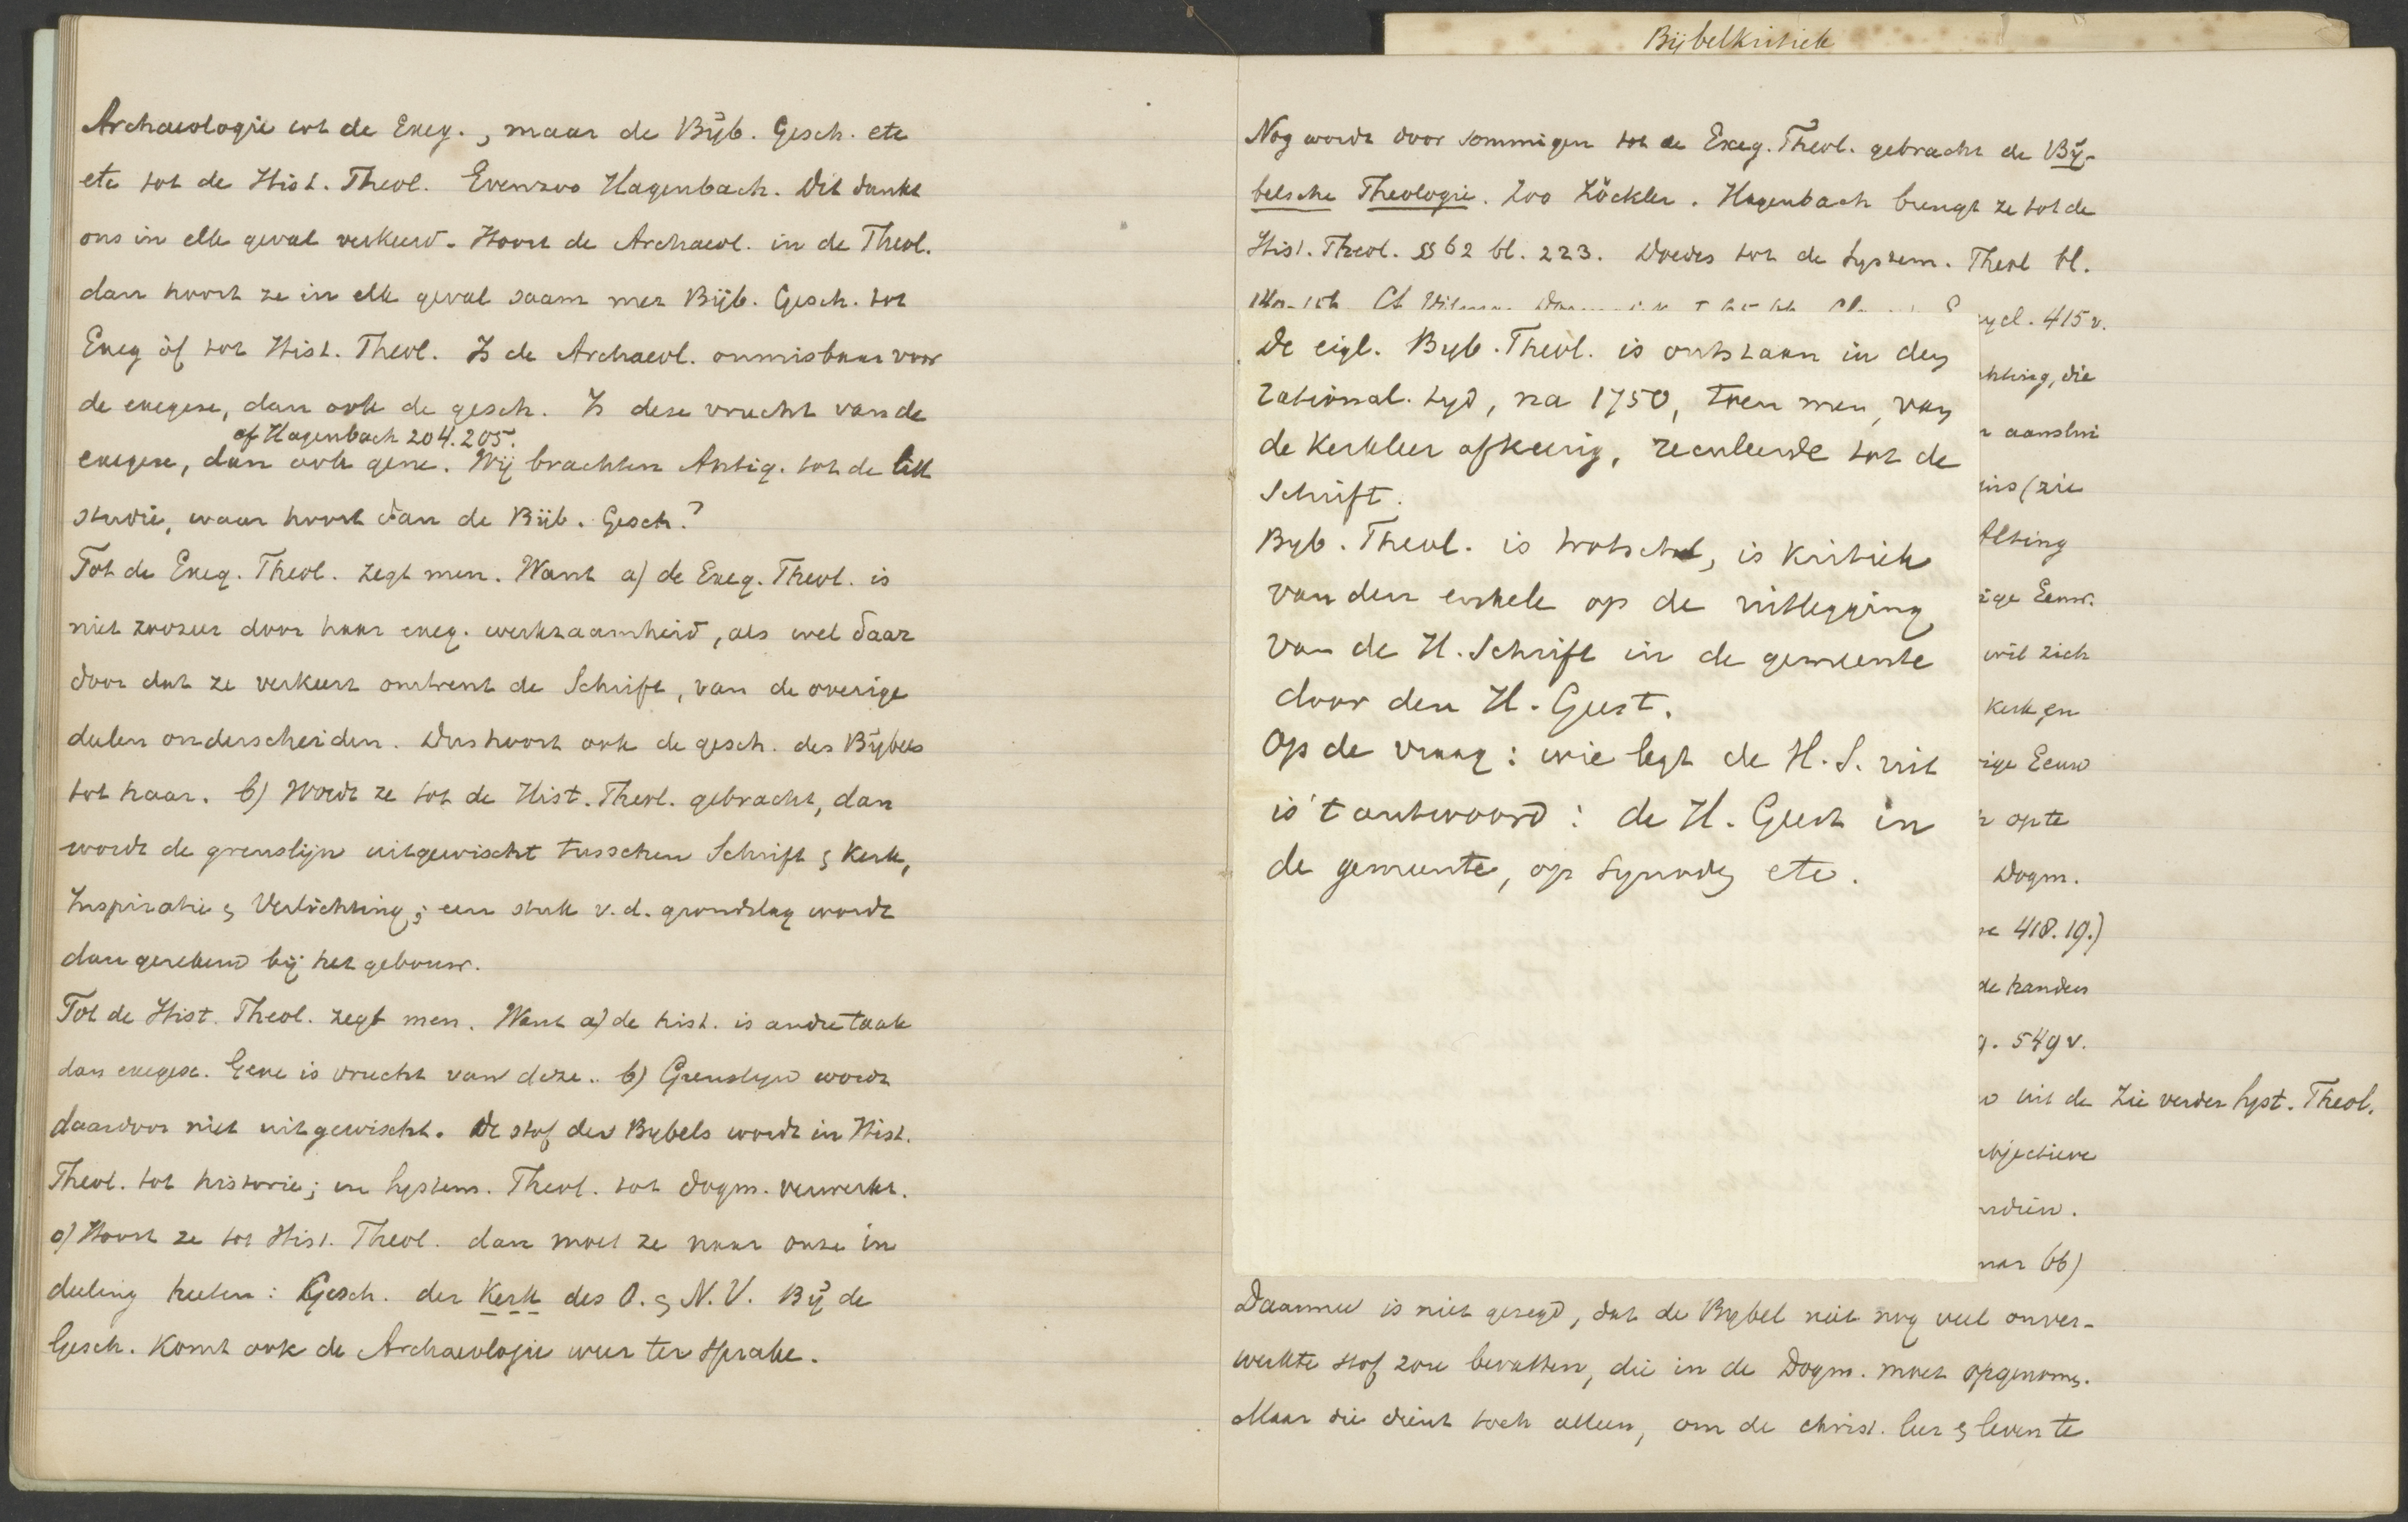 Archaeologie tot de Exeg., maar de Bijb. Gesch. etc
etc tot de Hist. Theol. Evenzoo Hagenbach. Dit dunkt
ons in elk geval verkeerd. Hoort de Archaeol. in de Theol.
dan hoort ze in elk geval saam met Bijb. Gesch. tot
Exeg òf tot Hist. Theol. Is de Archaeol. onmisbaar voor
de exegese, dan ook de gesch. Is deze vrucht van de
cf Hagenbach 204.205.
exegese, dan ook gene. Wij brachten Antiq. tot de litt
studie, waar hoort dan de Bijb. Gesch?
Tot de Exeg. Theol. zegt men. Want a) de Exeg. Theol. is
niet zoozeer door haar exeg. werkzaamheid, als wel daar
door dat ze verkeert omtrent de Schrift, van de overige
deelen onderscheiden. Dus hoort ook de gesch. des Bijbels
tot haar. b) Wordt ze tot de Hist. Theol. gebracht, dan
wordt de grenslijn uitgewischt tusschen Schrift & Kerk,
Inspiratie & Verlichting; een stuk v.d. grondslag wordt
dan gerekend bij het gebouw.
Tot de Hist. Theol. zegt men. Want a) de hist. is andre taak
dan exegese. Gene is vrucht van deze.. b) Grenslijn wordt
daardoor niet uitgewischt. De stof des Bybels wordt in Hist.
Theol. tot historie; in System. Theol. tot dogm. verwerkt.
c) Hoort ze tot Hist. Theol. dan moet ze naar onze in
deeling heeten: Gesch. der Kerk des O. & N.V. Bij de
Gesch. komt ook de Archaeologie weer ter sprake.
Bijbelkritiek
Nog wordt door sommigen tot de Exeg. Theol. gebracht de Bij-
belsche Theologie. Zoo Zöckler. Hagenbach brengt ze tot de
Hist. Theol. §§ 62 bl. 223. Doedes tot de System. Theol bl.
ycl. 415 v.
De eigl. Byb. Theol. is ontstaan in den
rational. tyd, na 1750, toen men, van
de Kerkleer afkeerig, reculeerde tot de
Schrift.
Byb. Theol. is trotsch, is Kritiek
van den enkele op de uitlegging
van de H. Schrift in de gemeente
door den H. Geest.
Op de vraag: wie legt de H.S. uit
is 't antwoord: de H. Geest in
de gemeente, op Synoden etc.
hting, die
aanslui
ins (zie
Alting
ige Eeuw.
wil zich
kerk en
ige Eeuw
op te
Dogm.
418.19.)
de handen
g. 549 v.
uit de Zie verder Syst. Theol.
bjectieve
ndien.
66)
Daarmee is niet gezegd, dat de Bybel niet nog veel onver-
werkte stof zou bevatten, die in de Dogm. moet opgenomen.
Maar die dient toch alleen, om de christ. leer & leven te